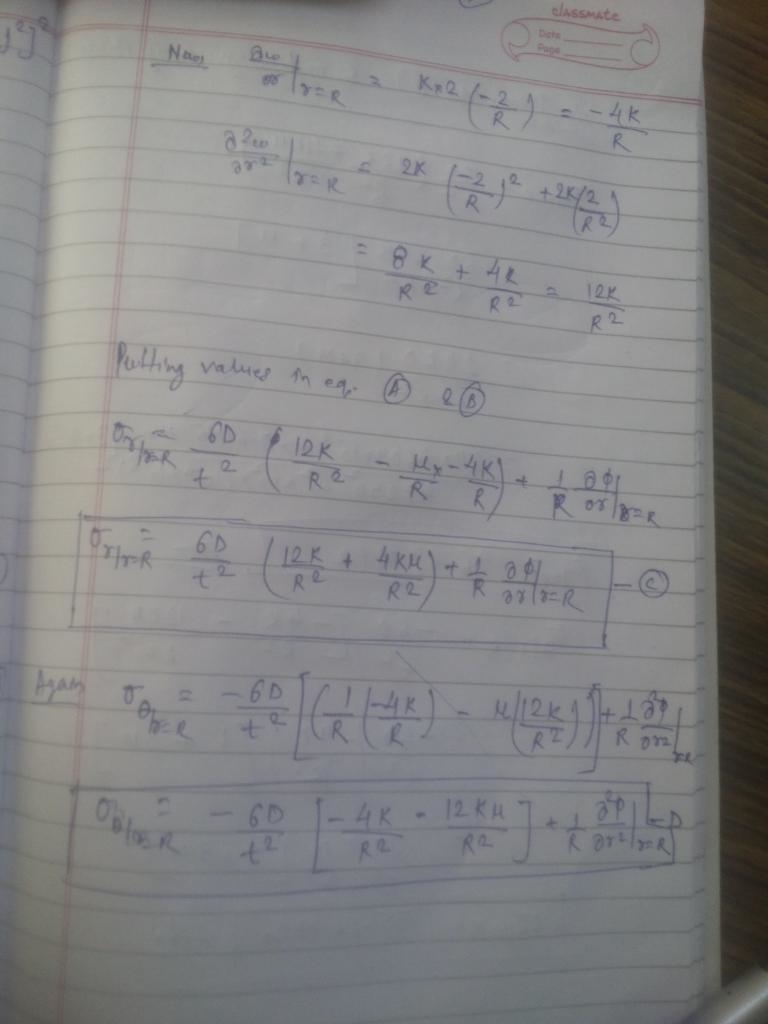 j²]²
classmate
Date
Page
Now ∂w/∂r |r=R = K×2 (-2/R) = -4K/R
∂²w/∂r² |r=R = 2K (-2/R)² + 2K(2/R²)
= 8K/R² + 4K/R² = 12K/R²
Putting values in eq. (A) & (B)
σr/r=R = 6D/t² (12K/R² - μ/R × -4K/R) + 1/R ∂φ/∂r |r=R
σr/r=R = 6D/t² (12K/R² + 4Kμ/R²) + 1/R ∂φ/∂r |r=R — (C)
Again σθ/r=R = -6D/t² [(1/R (-4K/R) - μ(12K/R²))] + 1/R ∂²φ/∂r² |r=R
σθ/r=R = -6D/t² [-4K/R² - 12Kμ/R²] + 1/R ∂²φ/∂r² |r=R — D